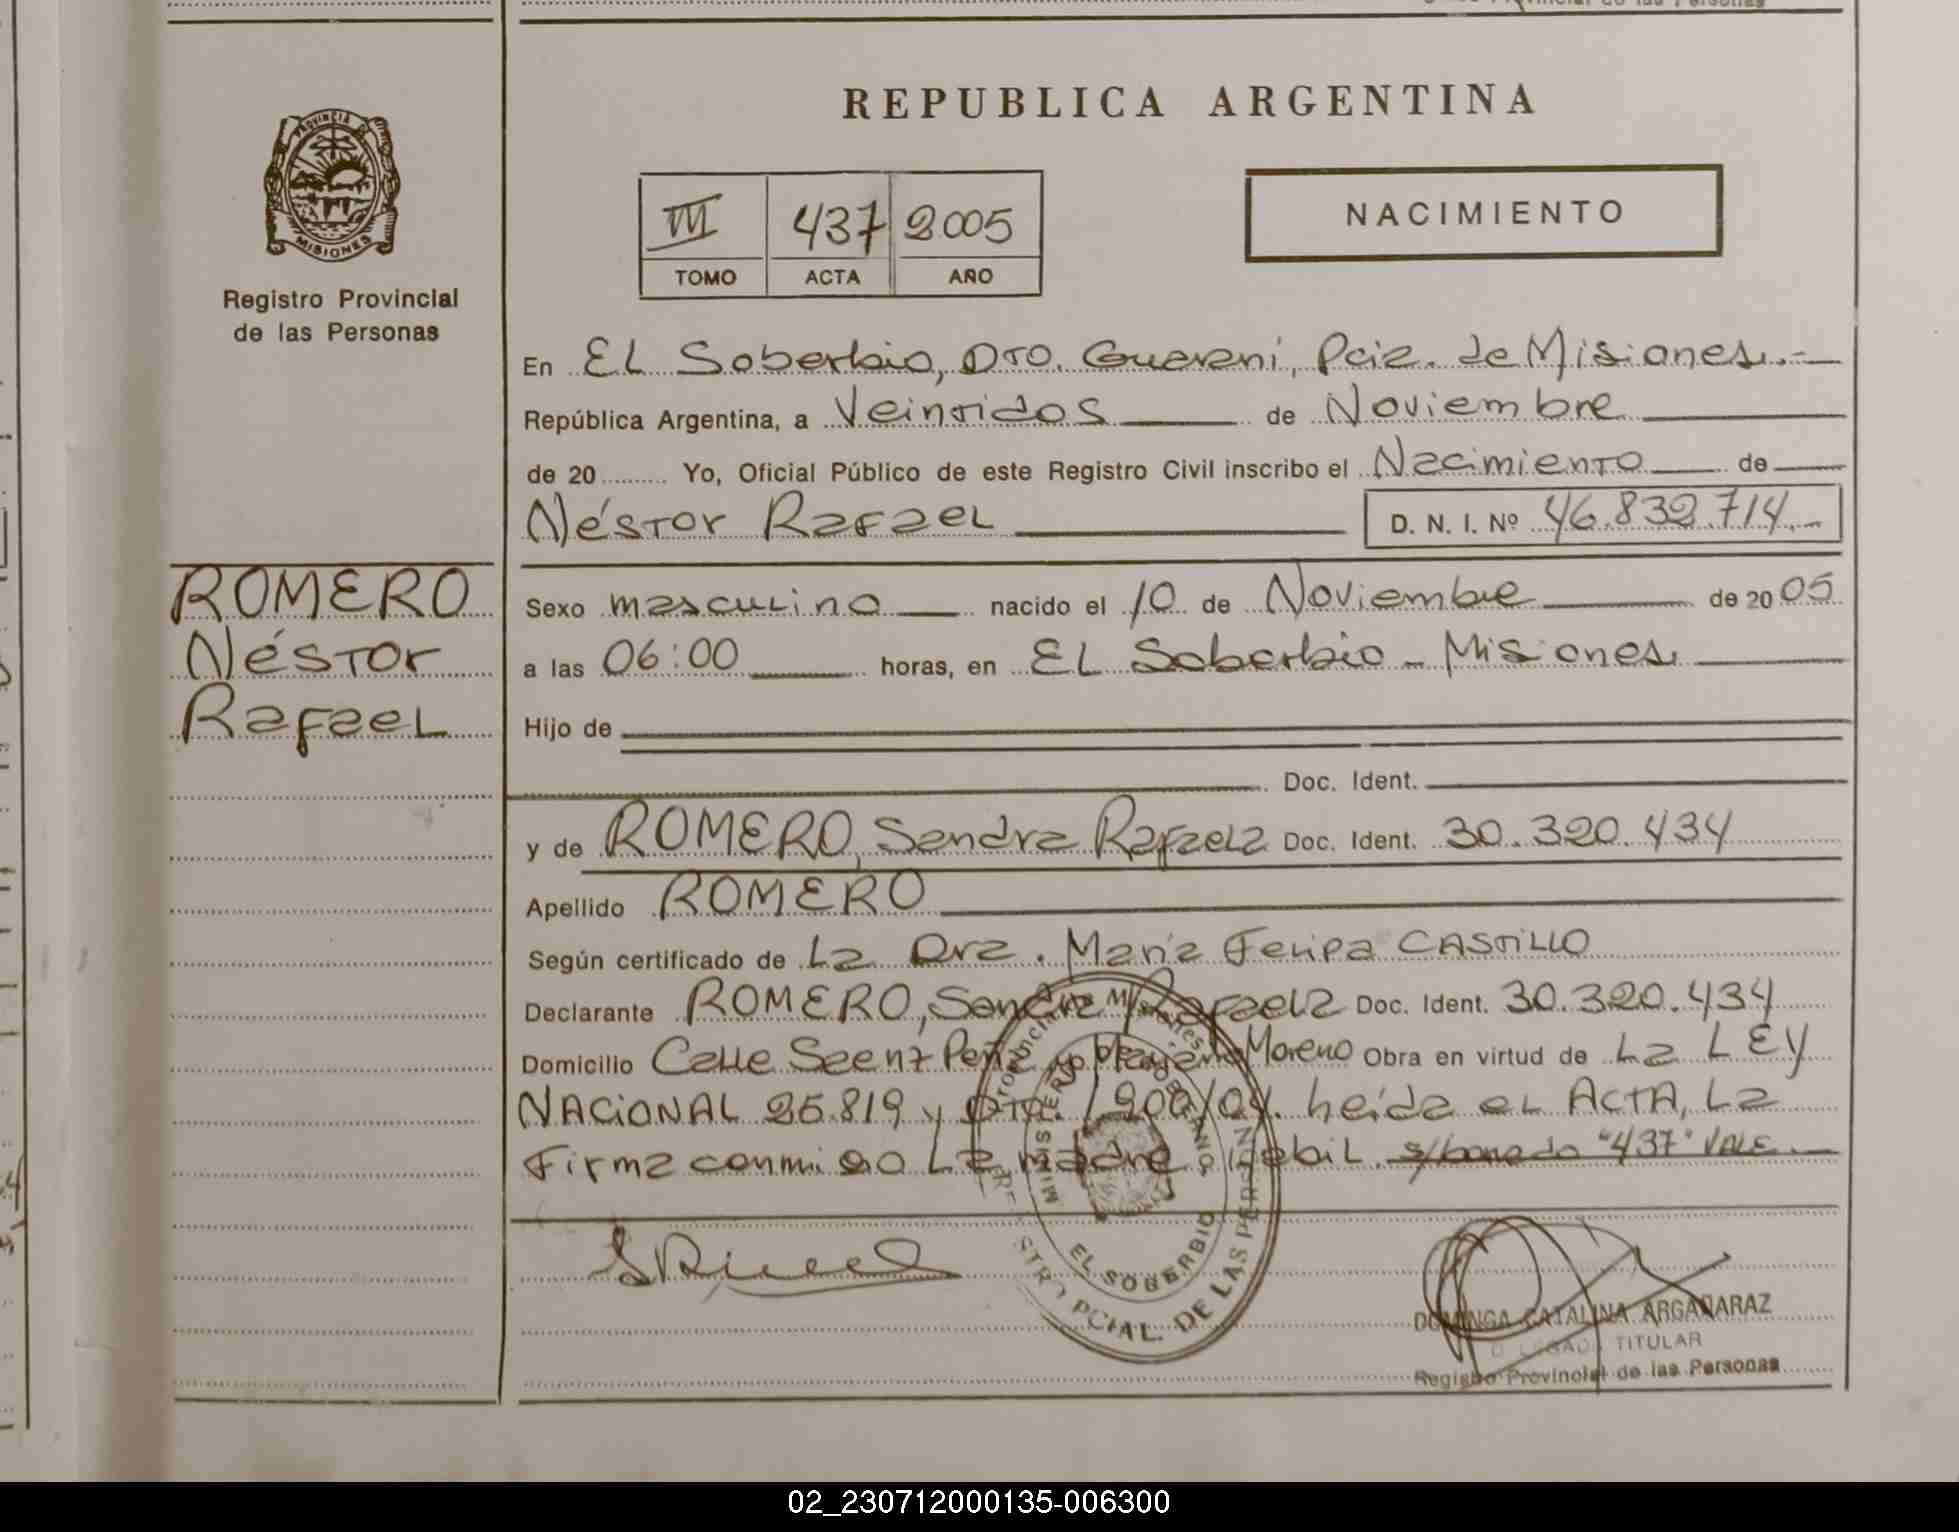 REPUBLICA ARGENTINA
PROVINCIA DE
MISIONES
Registro Provincial
de las Personas
III 437 2005
TOMO ACTA AÑO
NACIMIENTO
En EL Soberbio, Dto. Guaraní, Pcia. de Misiones.-
República Argentina, a Veintidos de Noviembre
de 20 Yo, Oficial Público de este Registro Civil inscribo el Nacimiento de
Néstor Rafael D. N. I. Nº 46.832.714.-
ROMERO
Néstor
Rafael
Sexo masculino nacido el 10 de Noviembre de 2005
a las 06:00 horas, en EL Soberbio - Misiones
Hijo de
Doc. Ident.
y de ROMERO, Sandra Rafaela Doc. Ident. 30.320.434
Apellido ROMERO
Según certificado de La Dra. María Felipa CASTILLO
Declarante ROMERO, Sandra Rafaela Doc. Ident. 30.320.434
Domicilio Calle Saenz Peña y Moreno Obra en virtud de La LEY
NACIONAL 25.819 y Dto. 1.900/04. Leída el ACTA, La
Firma conmigo La madre s/borrado "437" VALE.-
Provincia de Misiones
MINISTERIO GOBIERNO
EL SOBERBIO
REGISTRO PCIAL. DE LAS PERSONAS
DOMINGA CATALINA ARGAÑARAZ
DELEGADA TITULAR
Registro Provincial de las Personas
02_230712000135-006300